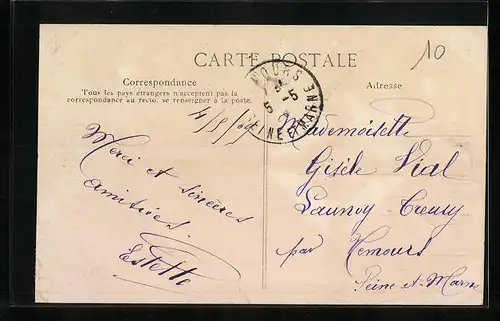 10
CARTE POSTALE
Correspondance
Tous les pays étrangers n'acceptent pas la
correspondance au recto, se renseigner à la poste.
Adresse
MOURS
5 -5
SEINE ET MARNE
Merci et sincères
amitiés.
Estelle
Mademoiselle
Gisèle Vial
Launoy
par Nemours
Seine-et-Marne